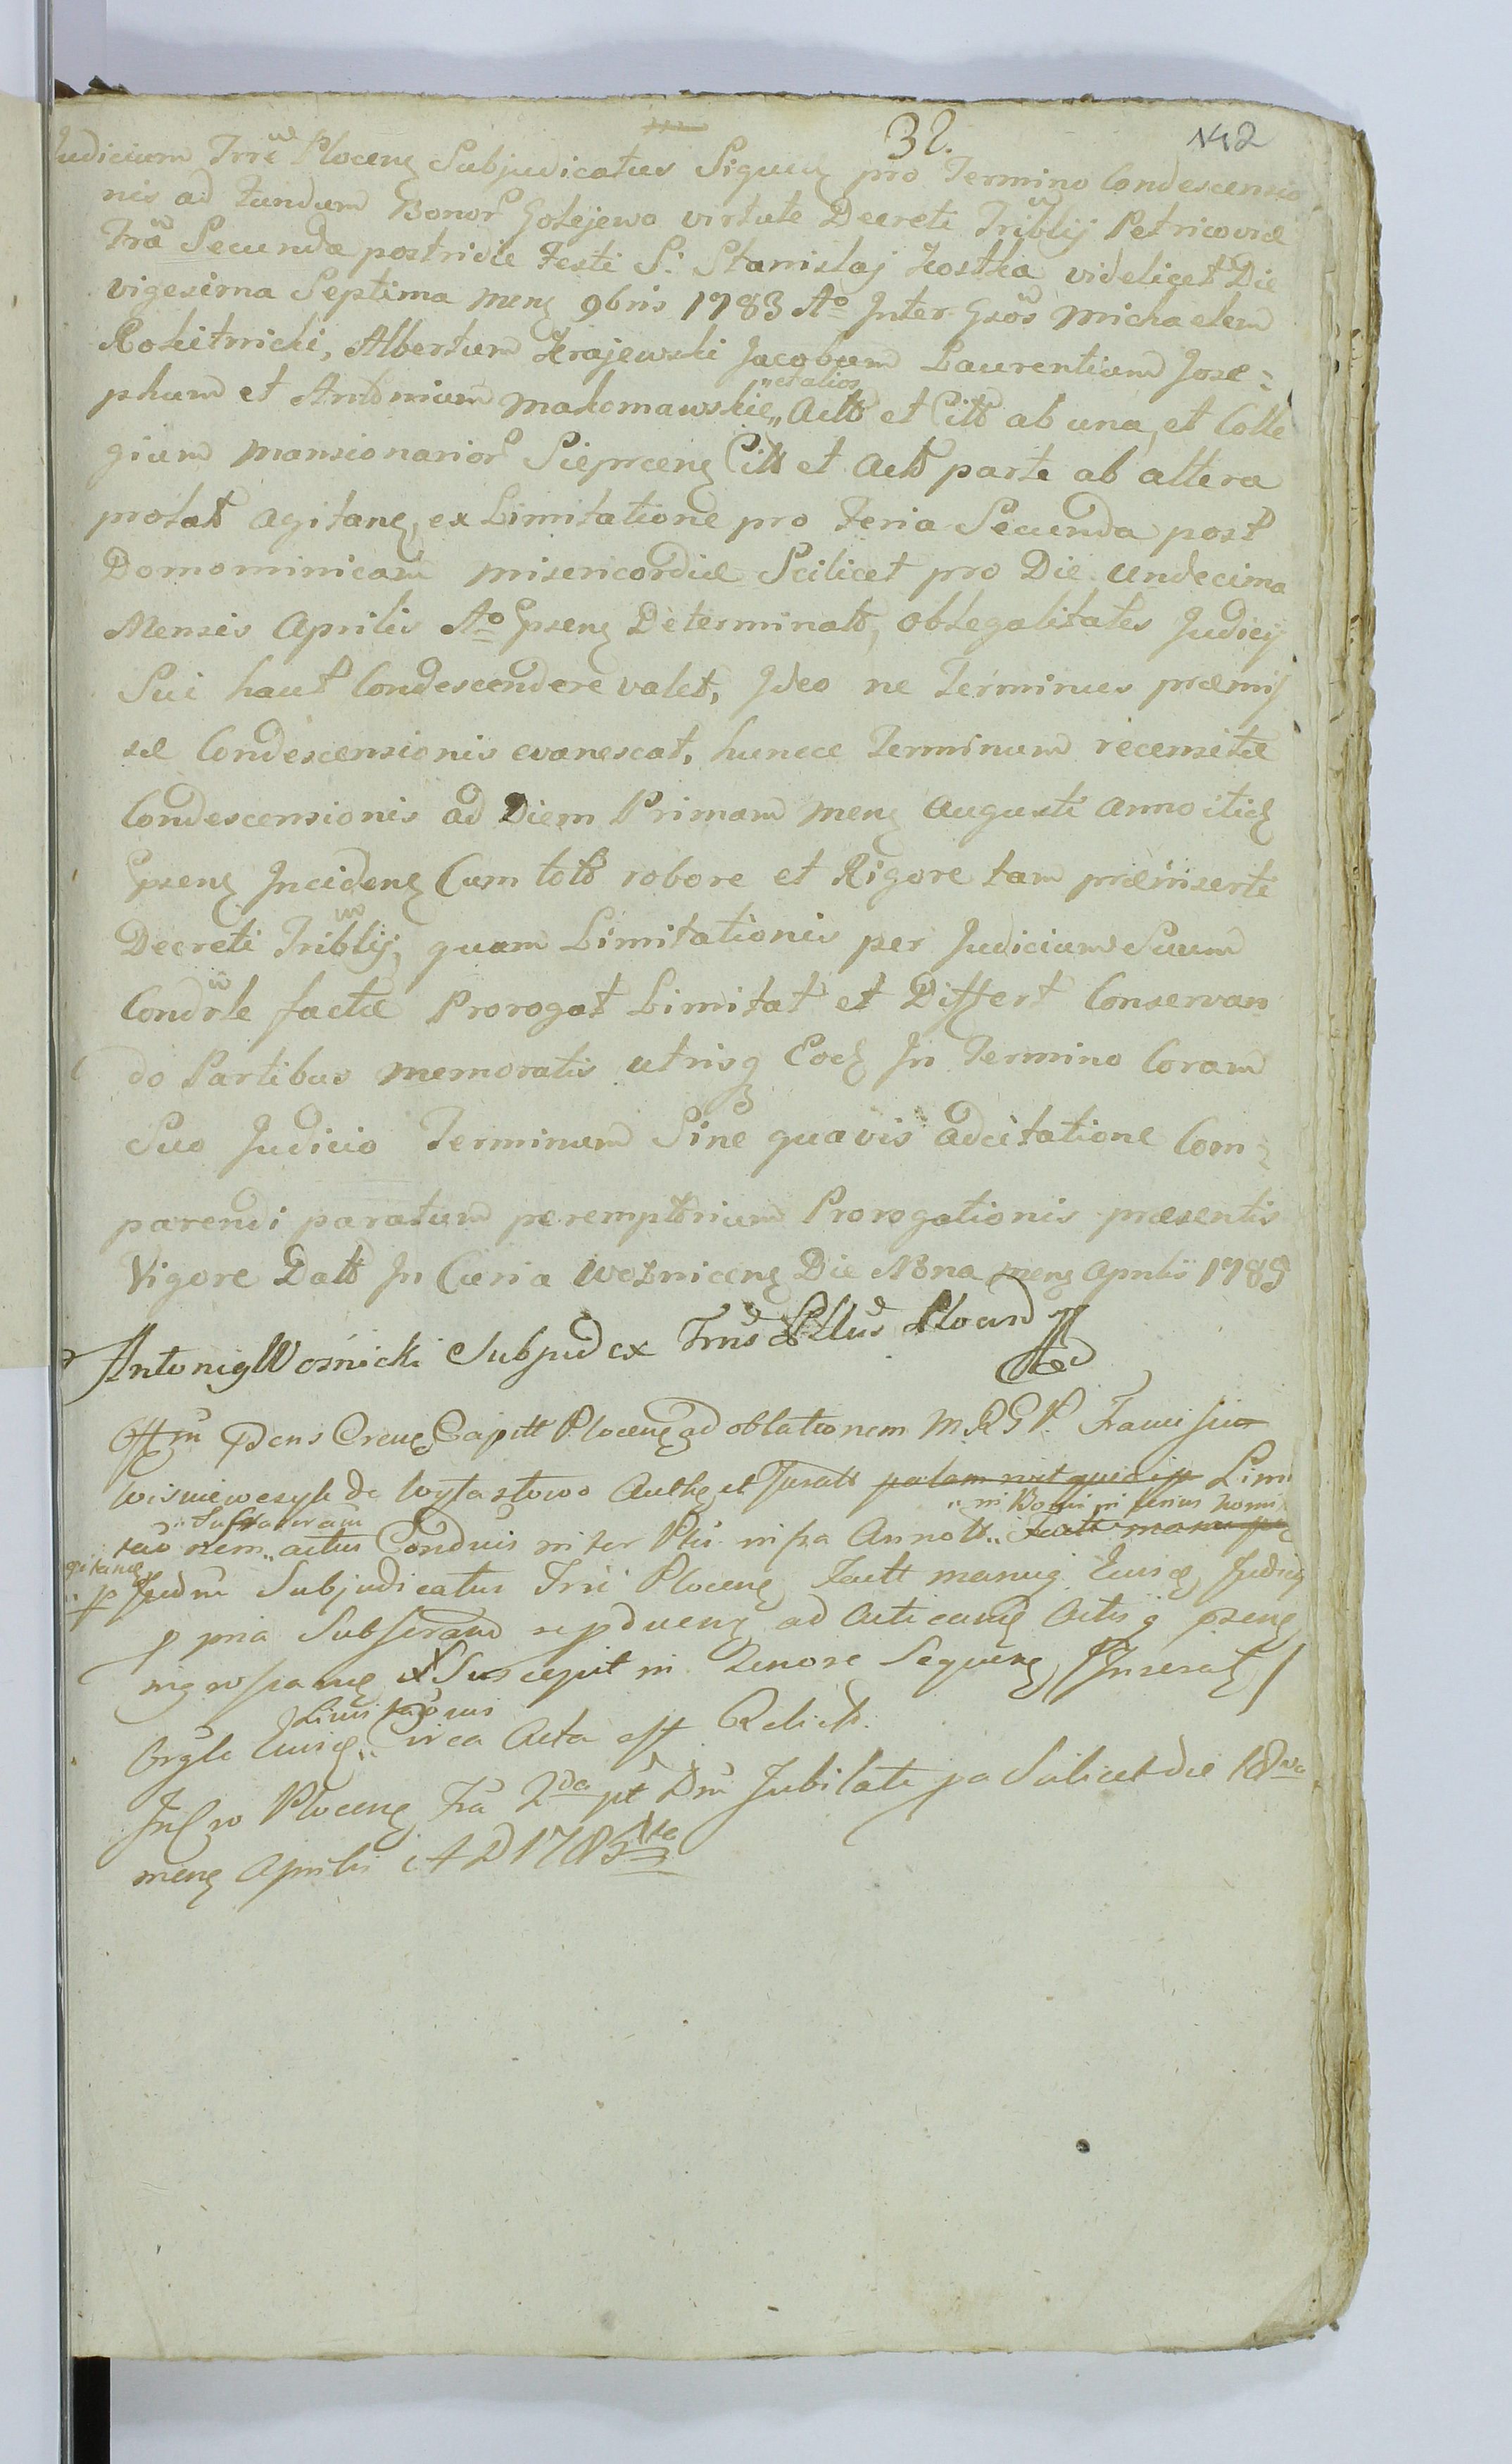 32.
142
Judicium Trrẽ Plocenʒ Subjudicatus Siguenʒ pro Termino Condescensio
nis ad fundum Bonor Golejewo virtute Decreti Triblÿ Petricoviæ
Frã Secunda postridie Festi S: Stanislaj Kostka videlicet Die
vigesima Septima menʒ 9bris 1783 Ao Inter Gsõs Michaelem
Rokitnicki, Albertum Krajewski Jacobum Laurentium Jose:
phum et Antonium Makomawskie „et alios„ Actt et Citt ab una, et Colle
gium Mansionarior Sieprcenʒ Citt et Actt parte ab altera
protunc agitanʒ, ex Limitatione pro Feria Secunda post
Domominicam Misericordiæ Scilicet pro Die undecima
Mensis Aprilis Ao Ipsenʒ Determinatt, ob legalitates Judicÿ
Sui haut Condescendere valet, Ideo ne Terminus præmis
sæ Condescensionis evanescat, huncce Terminum recensitæ
Condescensionis ad Diem Primam menʒ Augusti anno itidʒ
psenʒ Incidenʒ Cum toto robore et Rigore tam præinserti
Decreti Triblÿ, quam Limitationis per Judicium Suum
Condrle factæ Prorogat Limitat et Differt Conservan
do Partibus memoratis utrisqʒ Eodʒ In Termino Coram
Suo Judicio Terminum Sine quavis adcitatione Com:
parendi paratum peremptorium Prorogationis præsentis
Vigore Datt In Curia Woźnicenʒ Die Nona menʒ Aprilis 1785
Antonig Woźnicki Subjudex Trrus Pllus Plocen
Offm Pdens Crenʒ Capitt Plocenʒ ad oblationem M. R. G. P. Francisci
Wisniewczyk de Wytastowo Authʒ et Juratt Limi
„in Bonis
tao nem „ actus Conduis inter Ptes infra Annott „
gitanʒ
„ p Judm Subjudicatus Trrẽ Plocenʒ Factt manuq Eiusqʒ Judicÿ
p pria Subscram repduenʒ ad Acticanʒ Actisq psenʒ
ingrossanʒ Suscepit in Tenore Sequenʒ / Inseratʒ /
Limitaõnis
Orgle Eiusqʒ „ Circa Acta off Relict.
In Cro Plocenʒ Fra 2da pt Dm Jubilate pa Scilicet die 18va
menʒ Aprilis A D 1785to